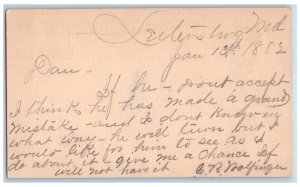 Leitersburg Md
Jan 12th 1883
Dan.
If he - dont accept
I think he has made a grand
mistake - and I dont know in
what way - he will turn but I
would like for him to see as I
do about, it - give me a chance If
will not have it C. B. Wolfinger